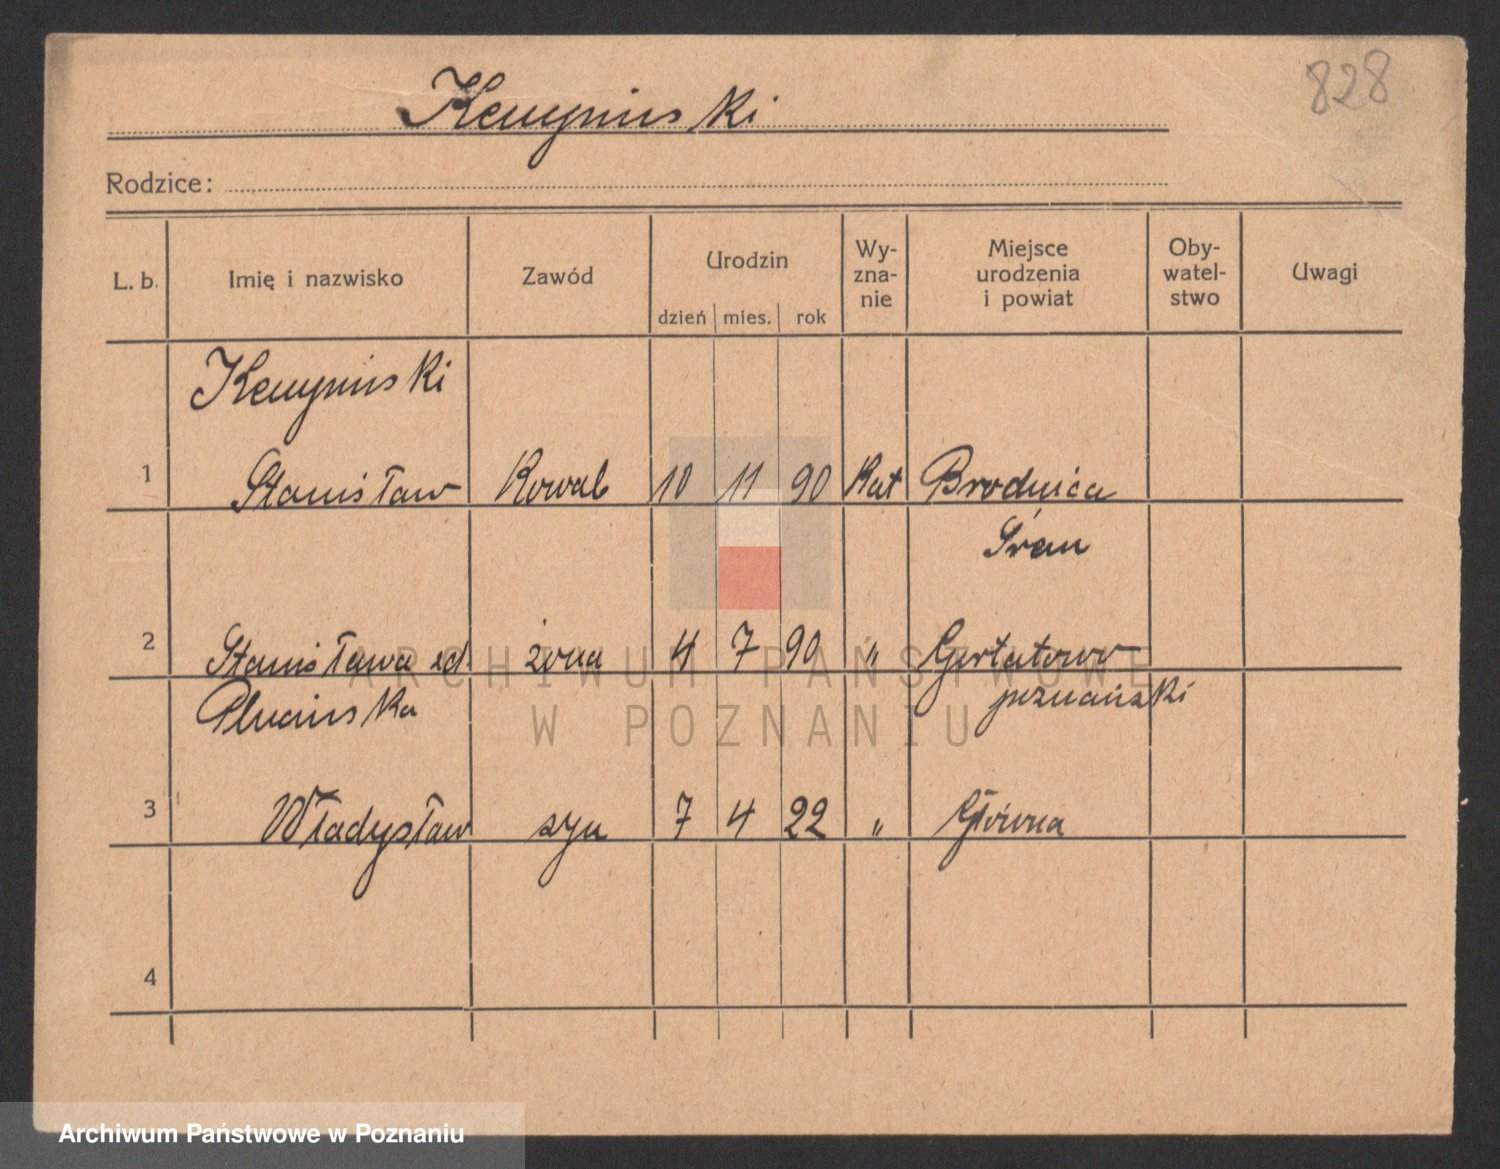 828
Kempiński
Rodzice:
L. b. Imię i nazwisko Zawód Urodzin dzień mies. rok Wy-zna-nie Miejsce urodzenia i powiat Oby-watel-stwo Uwagi
Kempiński
1 Stanisław Kowal 10 11 90 Kat Brodnica
Śrem
2 Stanisława zd. żona 4 7 90 „ Gortatowo
poznański
3 Władysław syn 7 4 22 „ Główna
4
ARCHIWUM PAŃSTWOWE
W POZNANIU
Archiwum Państwowe w Poznaniu